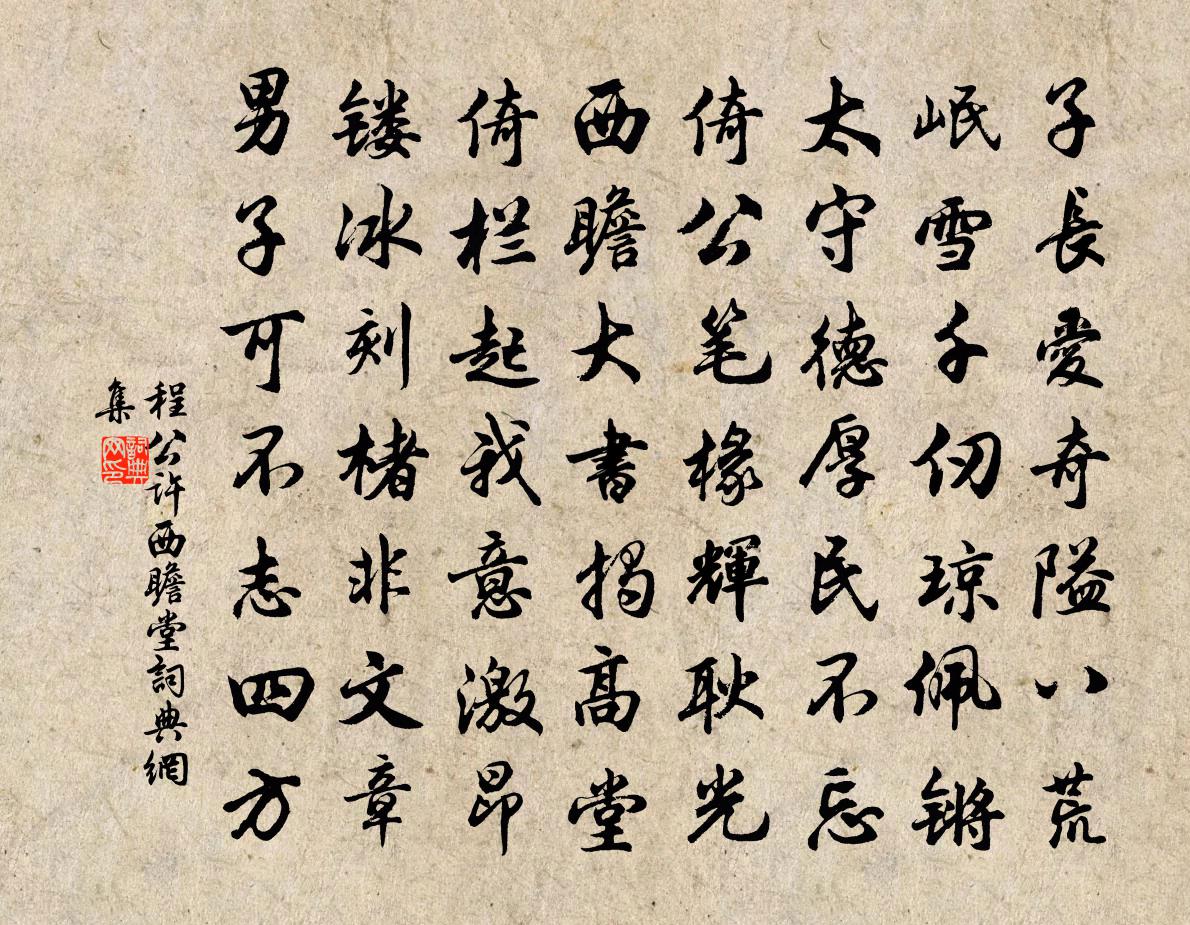 子長愛奇隘八荒
岷雪千仞琼佩锵
太守德厚民不忘
倚公笔椽輝耿光
西瞻大書揭高堂
倚栏起我意激昂
镂冰刻楮非文章
男子可不志四方
程公許西瞻堂詞典網
集
詞典
网印